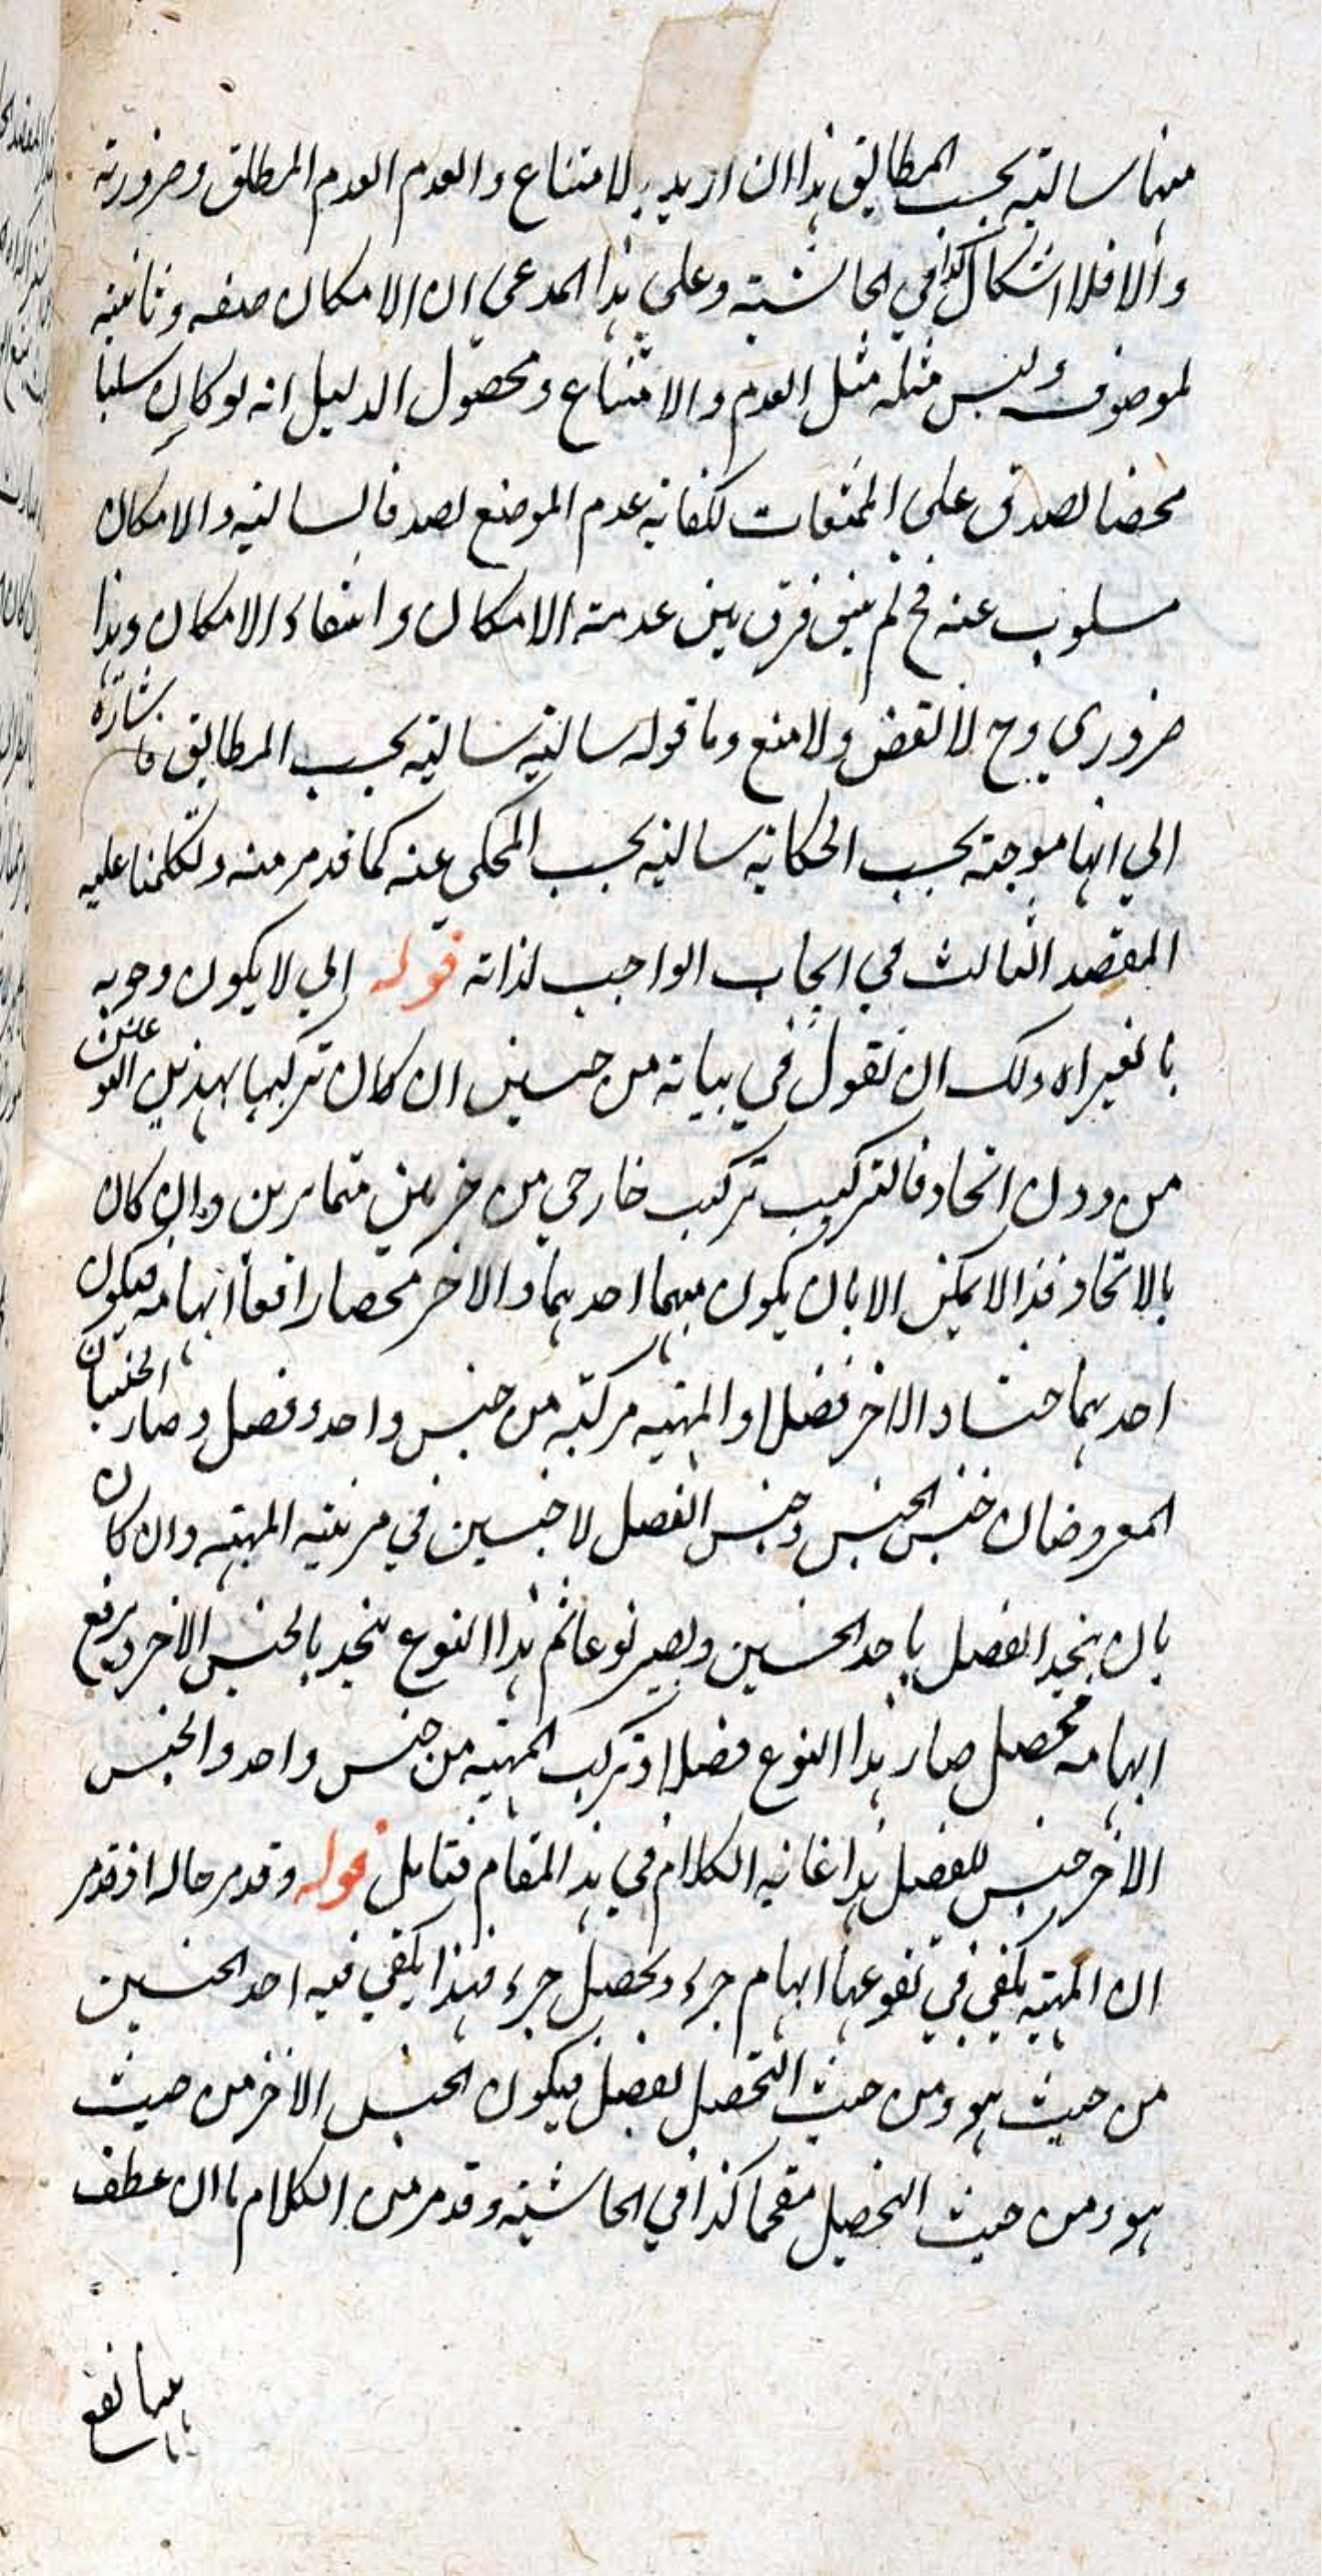 منهما سالبته بحسب المطابق هذا ان اريد بالامتناع والعدم العدم المطلق وضرورته
والا فلا اشكال كذا في الحاشية وعلى هذا المدعى ان الامكان صفة وثابتة
لموصوف وليس مثله مثل العدم والامتناع ومحصول الدليل انه لو كان سلبا
محضا لصدق على الممتنعات لكفاية عدم الموضوع لصدق السالبة والامكان
مسلوب عنه فح لم يبق فرق بين عدمية الامكان وانتفاء الامكان وهذا
ضروري وح لا نقض ولا منع وما قوله سالبة سالبة بحسب المطابق فاشارة
الى انها موجبة بحسب الحكاية سالبة بحسب المحكي عنه كما قد مر منه وتكلمنا عليه
المقصد الثالث في ابحاث الواجب لذاته قوله اي لا يكون وجوبه
بالغير اه ولك ان تقول في بيانه من جنسين ان كان تركبها بهذين
من دون اتحاد فالتركيب تركيب خارجي من جزئين متمايزين وان كان
بالاتحاد فذا لا يمكن الا بان يكون مبهما احدهما والاخر محصلا رافعا ابهامه فيكون
احدهما جنسا والاخر فصلا والمهية مركبة من جنس واحد وفصل وصار الجنسان
المعروضان جنس الجنس وجنس الفصل لا جنسين في مرتبة المهية وان كان
بان يتحد الفصل باحد الجنسين ويصير نوعا ثم هذا النوع يتحد بالجنس الاخر ويرفع
ابهامه محصل صار هذا النوع فصلا وتركب المهية من جنس واحد والجنس
الاخر جنس للفصل هذا غاية الكلام في هذا المقام فتامل قوله وقد مر حاله اذ قد مر
ان المهية يكفي في تنوعها ابهام جزء وتحصيل جزء فهذا يكفي فيه احد الجنسين
من حيث هو ومن حيث التحصيل لفصل فيكون الجنس الاخر من حيث
هو ومن حيث التحصيل مقحما كذا في الحاشية وقد مر من الكلام ما ان عطف